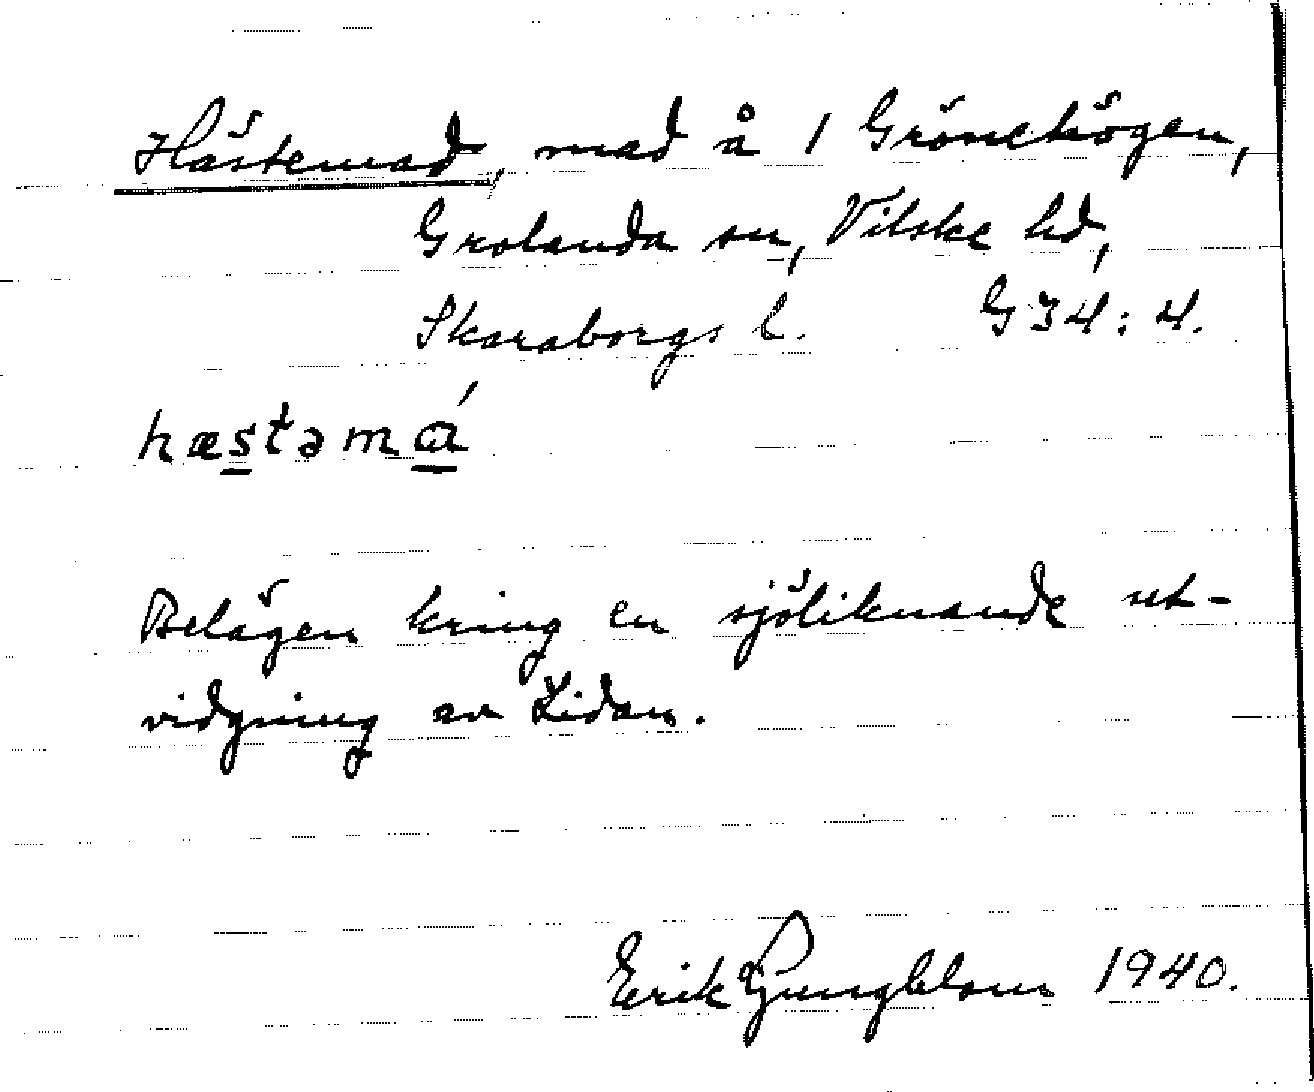 Hästemad, mad å 1 Grönehögen,
Grolanda sn, Vilske hd,
Skaraborgs l. G 34:4.
hæstəmá
Belägen kring en sjöliknande ut-
vidgning av Lidan.
Erik Ljungblom 1940.